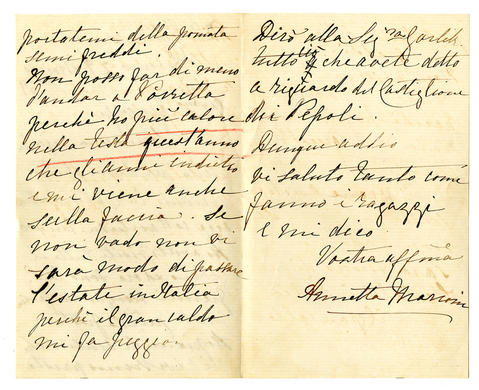 portatemi della pomata
semifreddi.
Non posso far di meno
d'andar a Porretta
perchè ho più calore
nella testa quest'anno
che gli anni indietro
e mi viene anche
sulla faccia. Se
non vado non vi
sarà modo di passare
l'estate in Italia
perchè il gran caldo
mi fa peggio.
Dirò alla Sig.ra
tutto ciò che avete detto
a riguardo del Castiglione
dei Pepoli.
Dunque addio
vi saluto tanto come
fanno i ragazzi
e mi dico
Vostra affma
Annetta